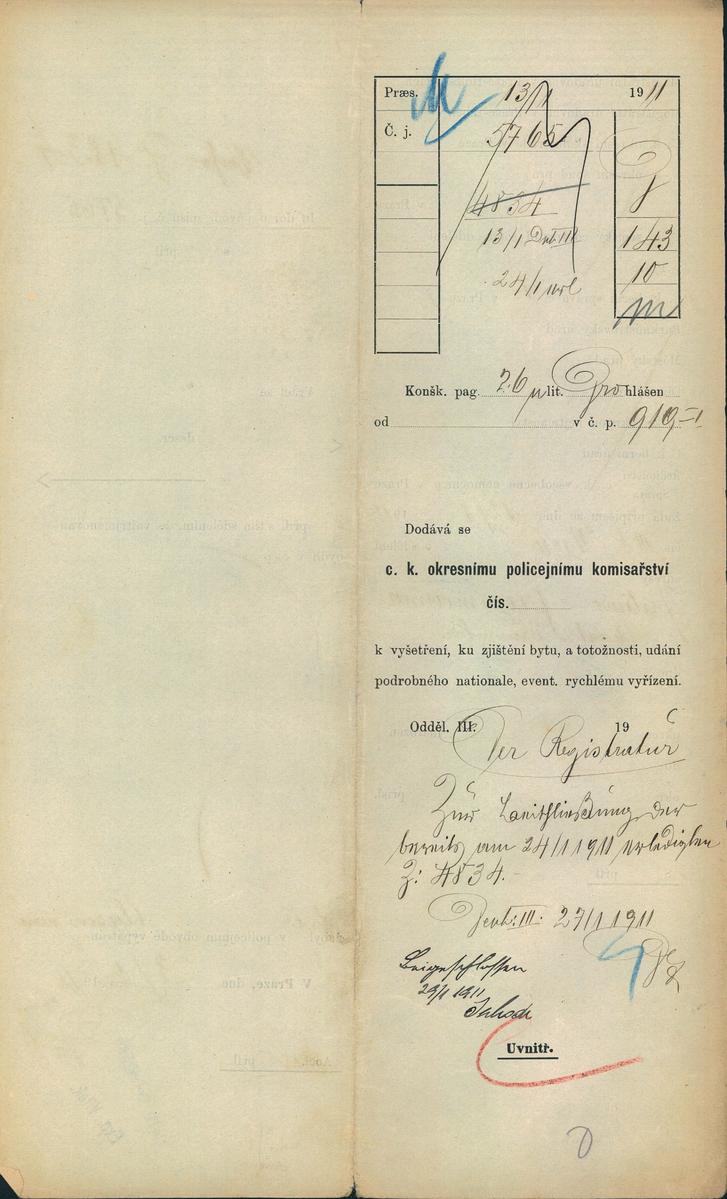 Præs. 13/1 1911
Č. j. 5765
4834
13/1 Dpt. III
143
24/1 erl
10
Konšk. pag. 26 lit. hlášen
od v č. p. 919-I
Dodává se
c. k. okresnímu policejnímu komisařství
čís.
k vyšetření, ku zjištění bytu, a totožnosti, udání
podrobného nationale, event. rychlému vyřízení.
Odděl. III. 19
Der Registratur
Zur Beischließung der
bereits am 24/1 1911 erledigten
Z: 4834.
Dept: III: 27/1 1911
Beigeschlossen
29/1 1911
Uvnitř.